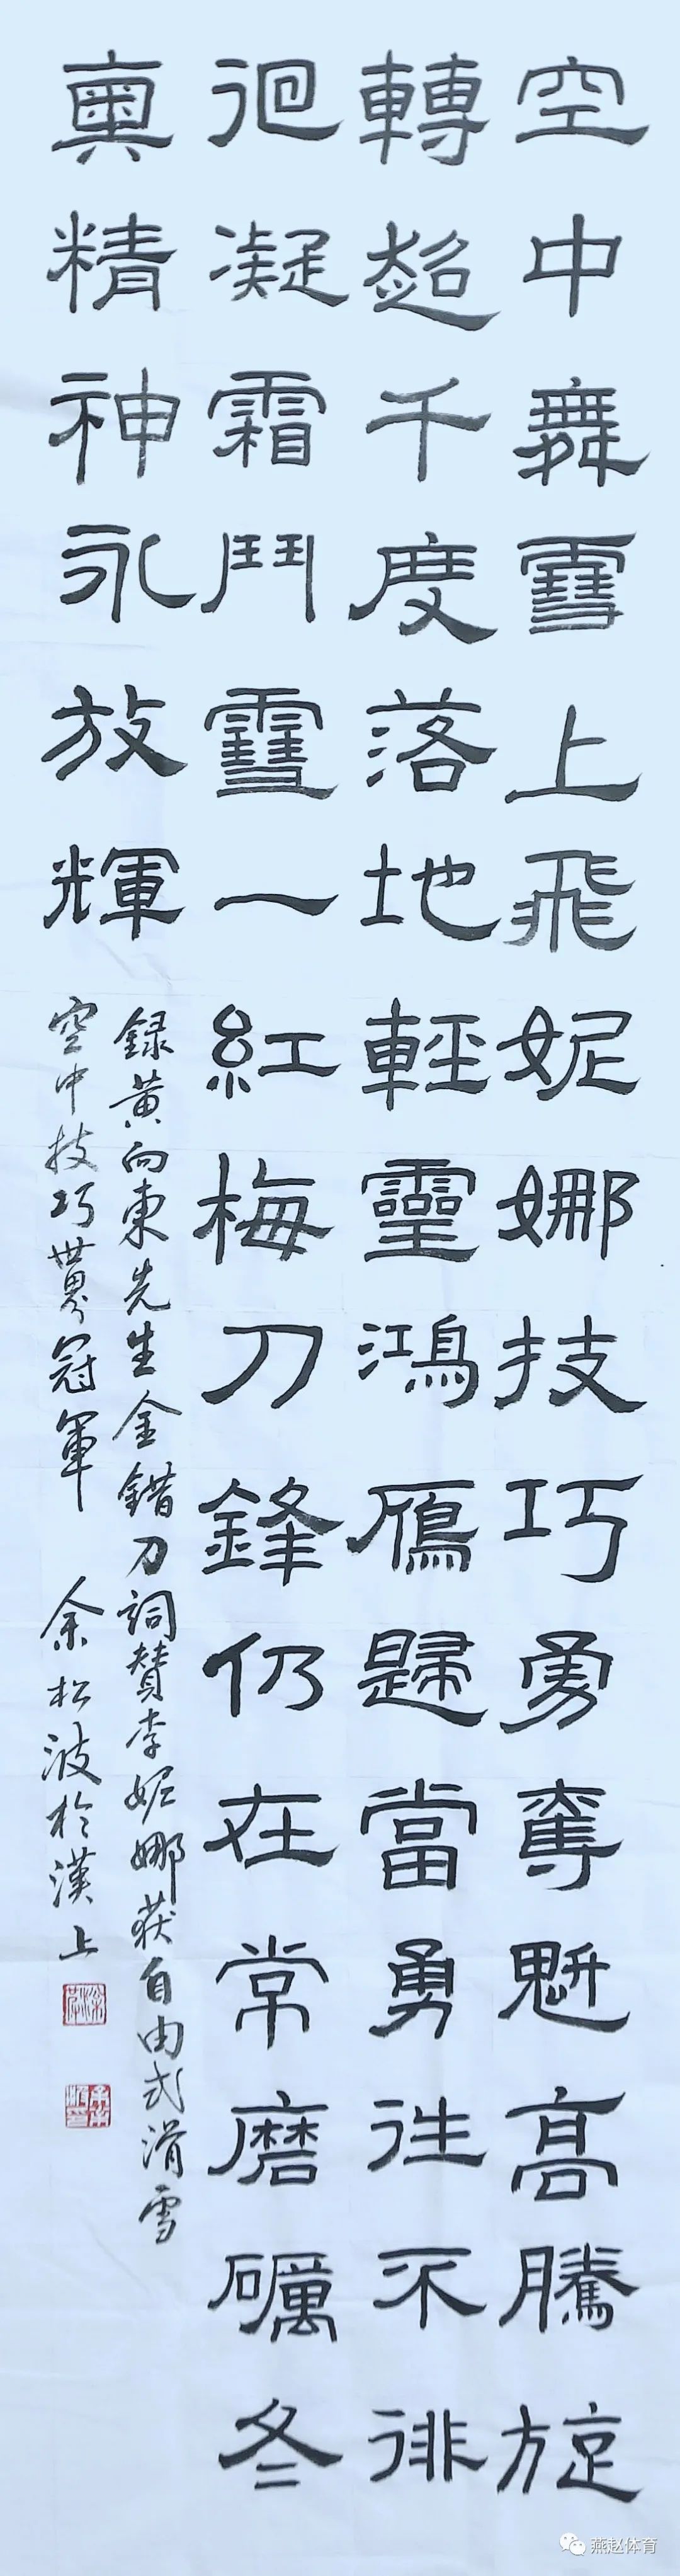 空中舞雪上飛妮娜技巧勇奪魁高騰旋
轉超千度落地輕靈鴻雁歸當勇往不徘
徊凝霜鬥雪一紅梅刀鋒仍在常磨礪冬
奧精神永放輝
録黃向東先生金錯刀詞賛李妮娜获自由式滑雪
空中技巧世界冠軍 余松波於漢上
燕赵体育